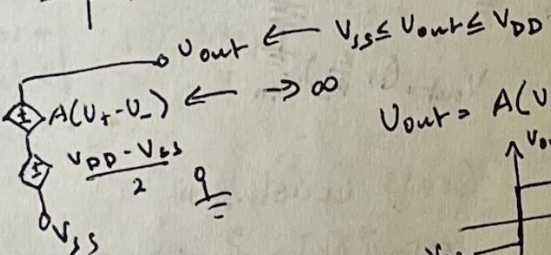 Vout ← Vss ≤ Vout ≤ VDD
A(U+ - U-) ← → ∞
Vout = A(U
VDD - Vss / 2
Vss